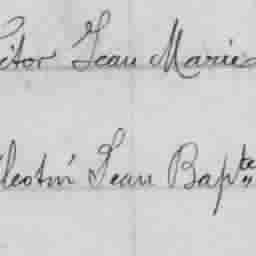 ictor Jean Marie
élestin Jean Bapte